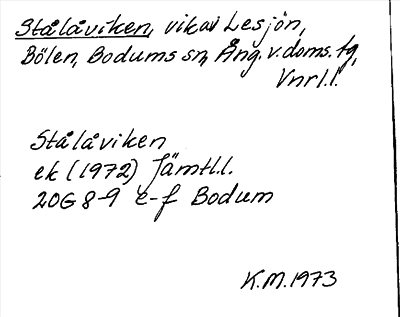 Stålåviken, vik av Lesjön,
Bölen, Bodums sn, Ång. v. doms. tg,
Vnrl.l.
Stålåviken
ek (1972) Jämtl.l.
20G 8-9 e-f Bodum
K.M. 1973